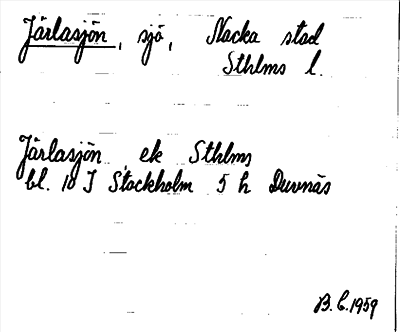 Järlasjön, sjö, Nacka stad
Sthlms l.
Järlasjön ek Sthlms
bl. 10 I Stockholm 5 h Duvnäs
B.C. 1959